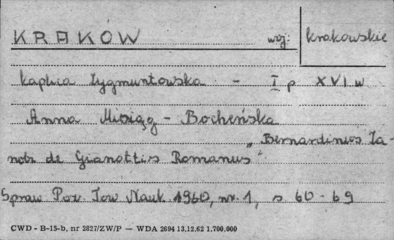 KRAKÓW woj: krakowskie
kaplica Zygmuntowska - I p XVI w
Anna Misiąg - Bocheńska
"Bernardinus Za-
nobi de Gianottis Romanus"
Spraw Poz. Tow Nauk 1960, nr. 1, s 60-69
CWD - B-15-b, nr 2827/ZW/P — WDA 2694 13.12.62 1.700.000